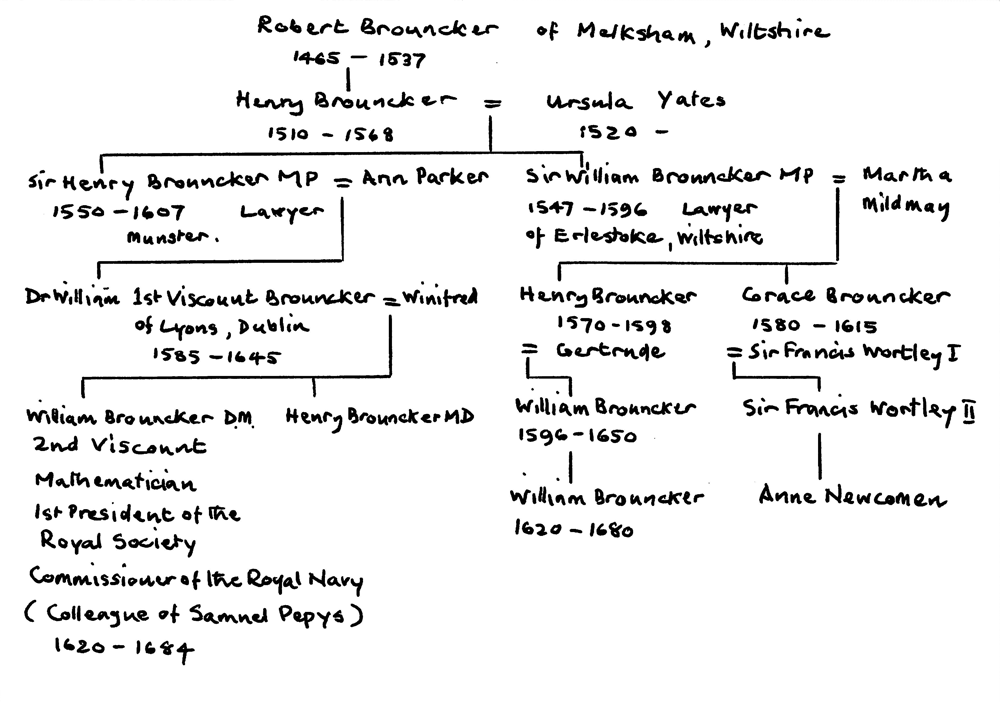 Robert Brouncker of Melksham, Wiltshire
1465 - 1537
Henry Brouncker = Ursula Yates
1510 - 1568
1520 -
Sir Henry Brouncker MP = Ann Parker
1550 - 1607 Lawyer
Munster.
Sir William Brouncker MP = Martha Mildmay
1547 - 1596 Lawyer
of Erlestoke, Wiltshire
Dr William 1st Viscount Brouncker = Winifred
of Lyons, Dublin
1585 - 1645
Henry Brouncker
1570 - 1598
= Gertrude
Grace Brouncker
1580 - 1615
= Sir Francis Wortley I
William Brouncker D.M.
2nd Viscount
Mathematician
1st President of the
Royal Society
Commissioner of the Royal Navy
(Colleague of Samuel Pepys)
1620 - 1684
Henry Brouncker MD
William Brouncker
1596 - 1650
Sir Francis Wortley II
William Brouncker
1620 - 1680
Anne Newcomen